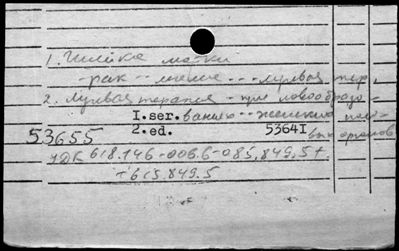 1. Шейка матки
- рак -- лечение --- лучевая тер.
2. Лучевая терапия - при новообразо-
I.ser. ваниях -- женских поло-
53655 2.ed. 5364I вых органов
УДК 618.146-006.6-085.849.5+
+615.849.5